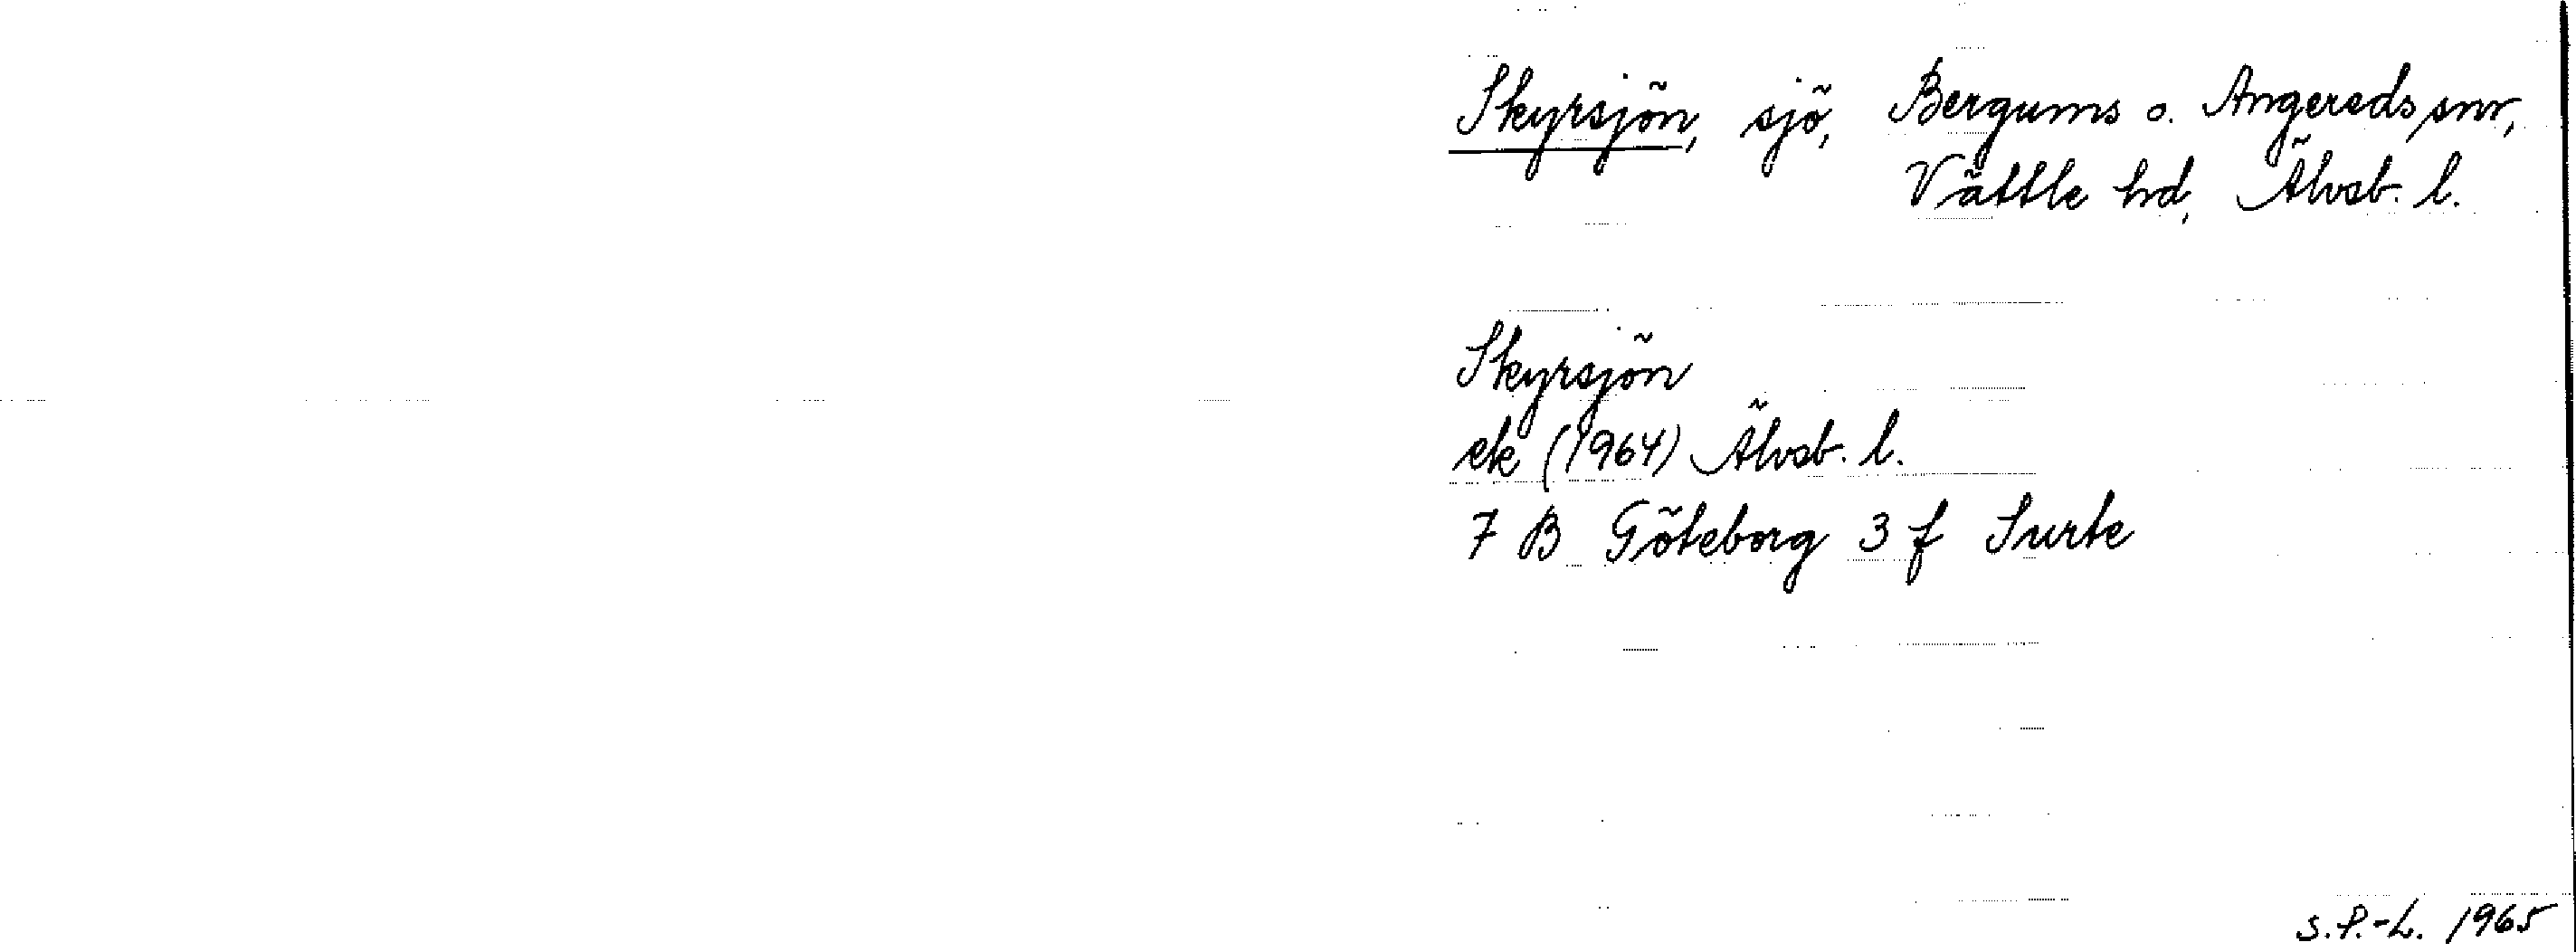 Skyrsjön, sjö, Bergums o. Angereds snr,
Vättle hd, Älvsb. l.
Skyrsjön
ek (1964) Älvsb. l.
7 B Göteborg 3 f Surte
S.P.-L. 1965